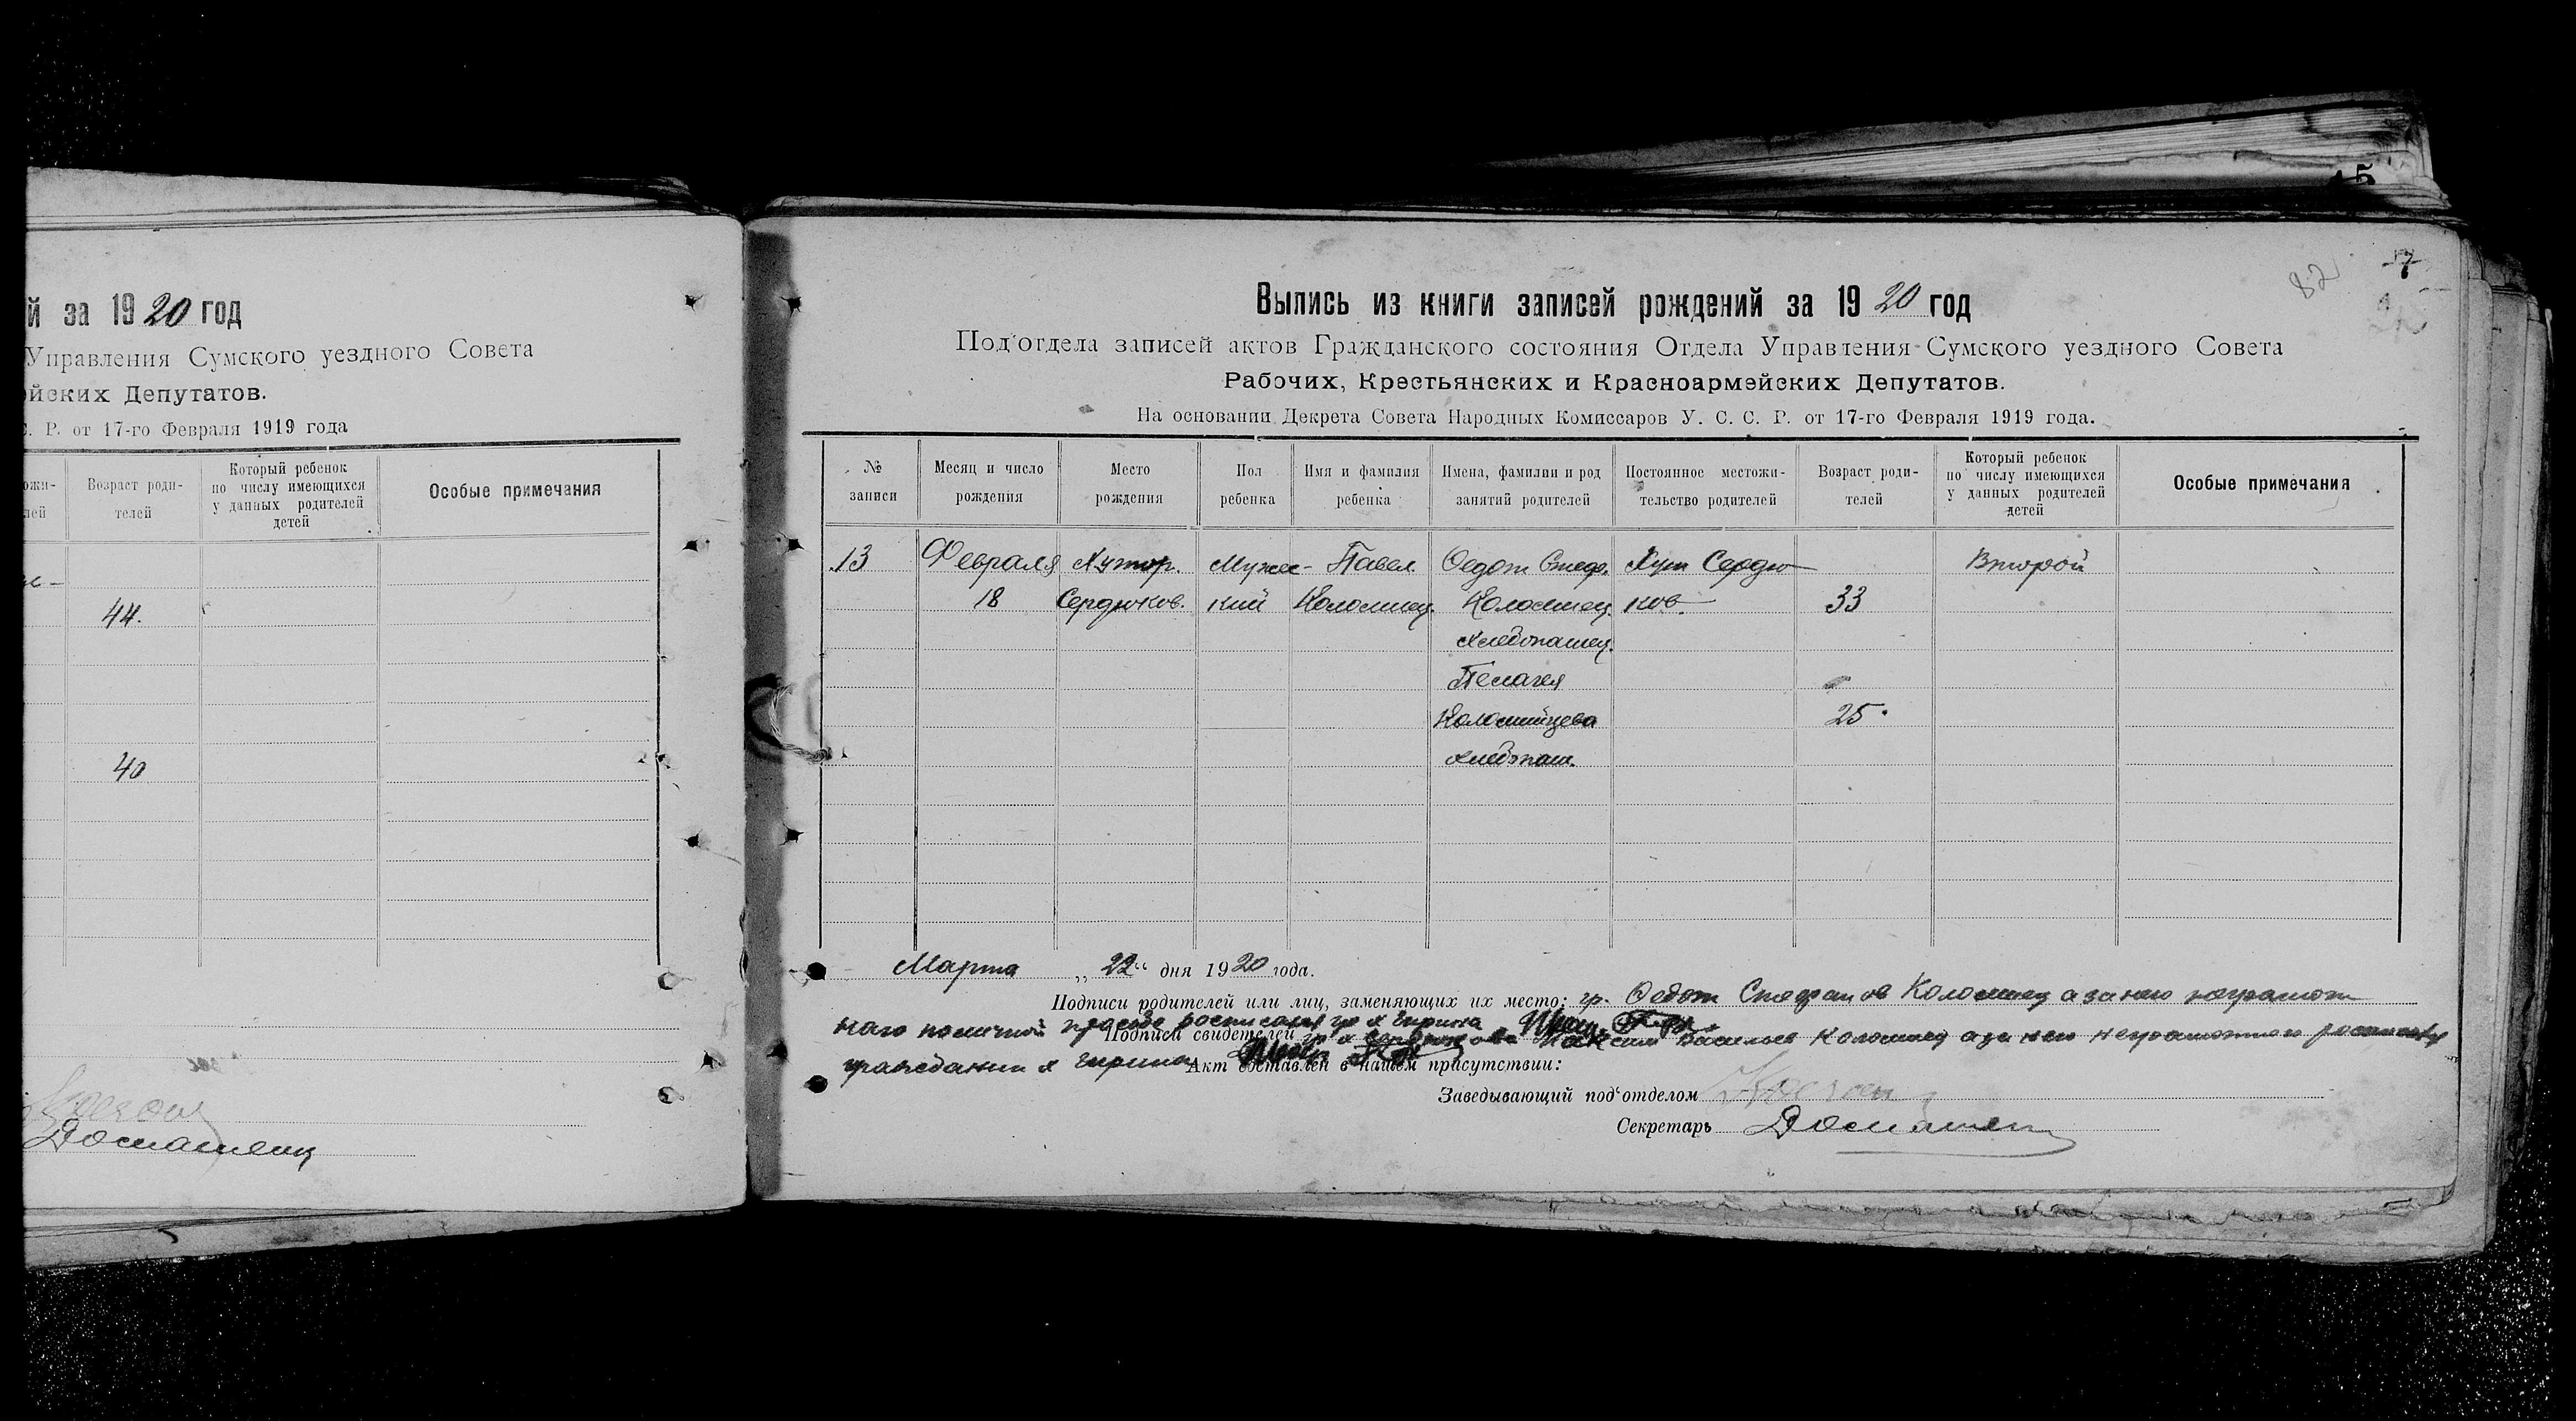 й за 1920 год
Управления Сумского уездного Совета
ейских Депутатов.
С. Р. от 17-го Февраля 1919 года
Возраст роди-
телей
Который ребенок
по числу имеющихся
у данных родителей
детей
Особые примечания
44.
40
Домашенц
15
7
82
Выпись из книги записей рождений за 1920 год
Под'отдела записей актов Гражданского состояния Отдела Управления Сумского уездного Совета
Рабочих, Крестьянских и Красноармейских Депутатов.
На основании Декрета Совета Народных Комиссаров У. С. С. Р. от 17-го Февраля 1919 года.
№
записи
Месяц и число
рождения
Место
рождения
Пол
ребенка
Имя и фамилия
ребенка
Имена, фамилии и род
занятий родителей
Постоянное местожи-
тельство родителей
Возраст роди-
телей
Который ребенок
по числу имеющихся
у данных родителей
детей
Особые примечания
13 Февраля Хутор. Мужес- Павел Федот Стеф. Хут Сердю- Второй
18 Сердюков. кий Коломиец Коломиец ков. 33
хлебопашец.
Пелагея
Коломийцева 25
хлебопаш.
Марта „22“ дня 1920 года.
Подписи родителей или лиц, заменяющих их место: гр. Федот Стефанов Коломиец а за него неграмот
наго по личной просьбе росписался гр х Гирина
Подписи свидетелей гр х Сердюкова Максим Васильев Коломиец а за него неграмотного
гражданин х Гирина
Акт составлен в нашем присутствии:
Заведывающий под'отделом
Секретарь Домашенц